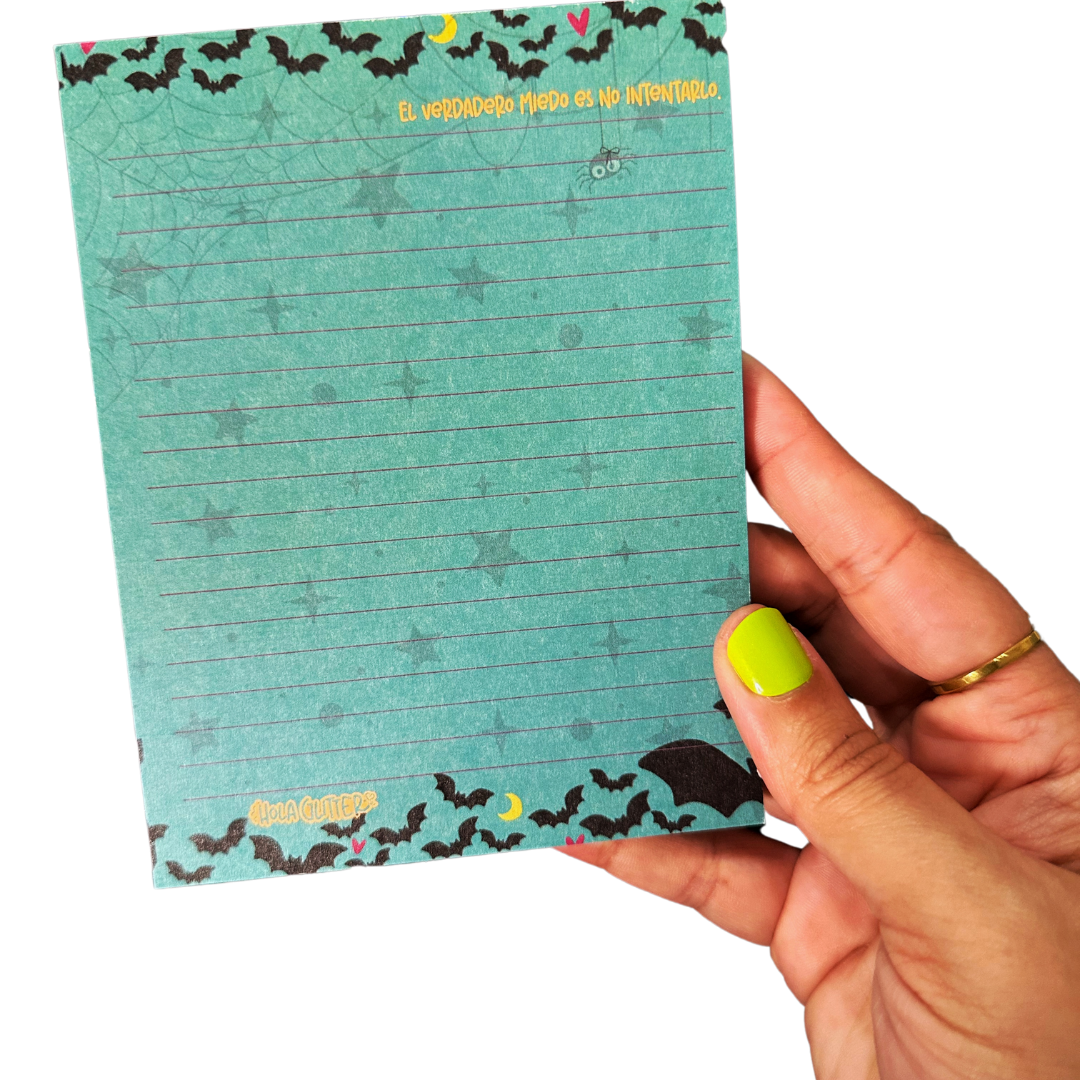 EL VERDADERO MIEDO ES NO INTENTARLO.
HOLA GLITTER